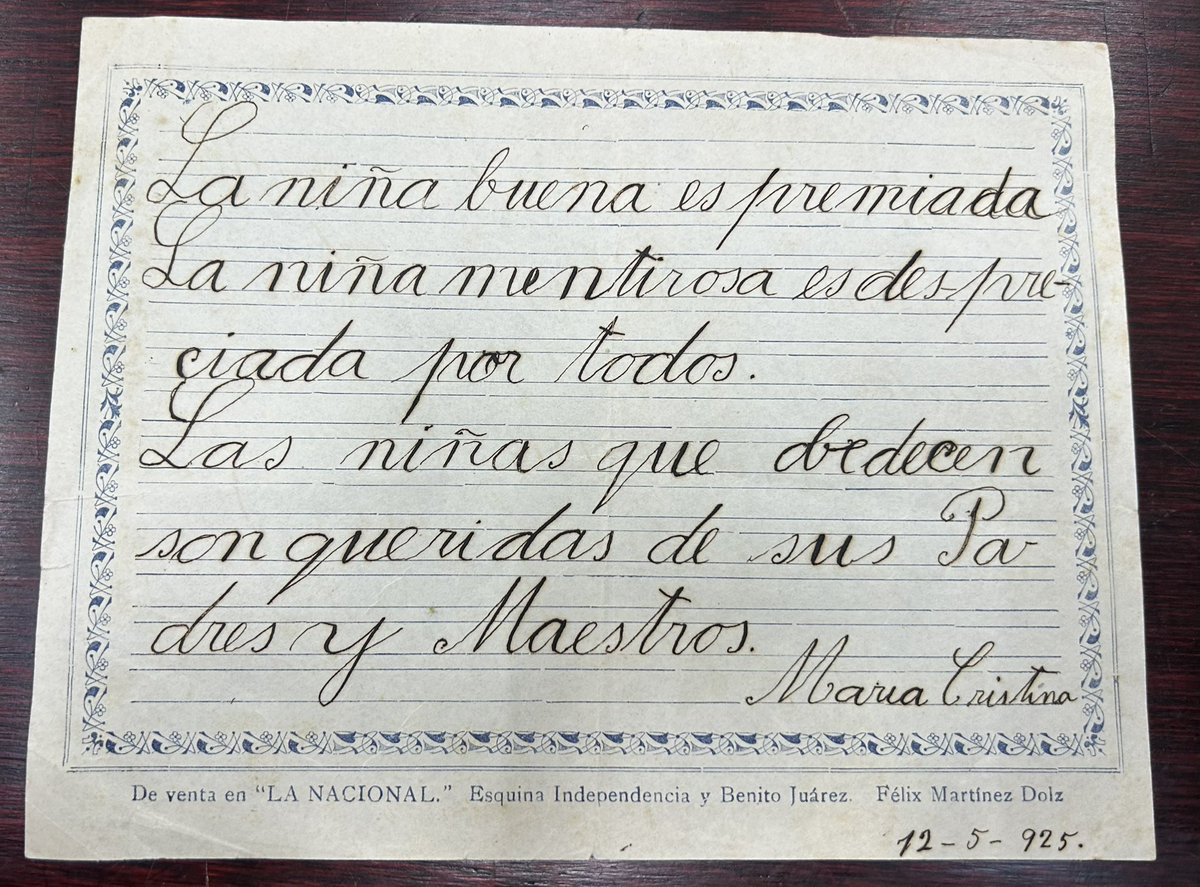 La niña buena es premiada
La niña mentirosa es des-pre-
ciada por todos.
Las niñas que obedecen
son queridas de sus Pa-
dres y Maestros.
Maria Cristina
De venta en "LA NACIONAL." Esquina Independencia y Benito Juárez. Félix Martínez Dolz
12-5-925.